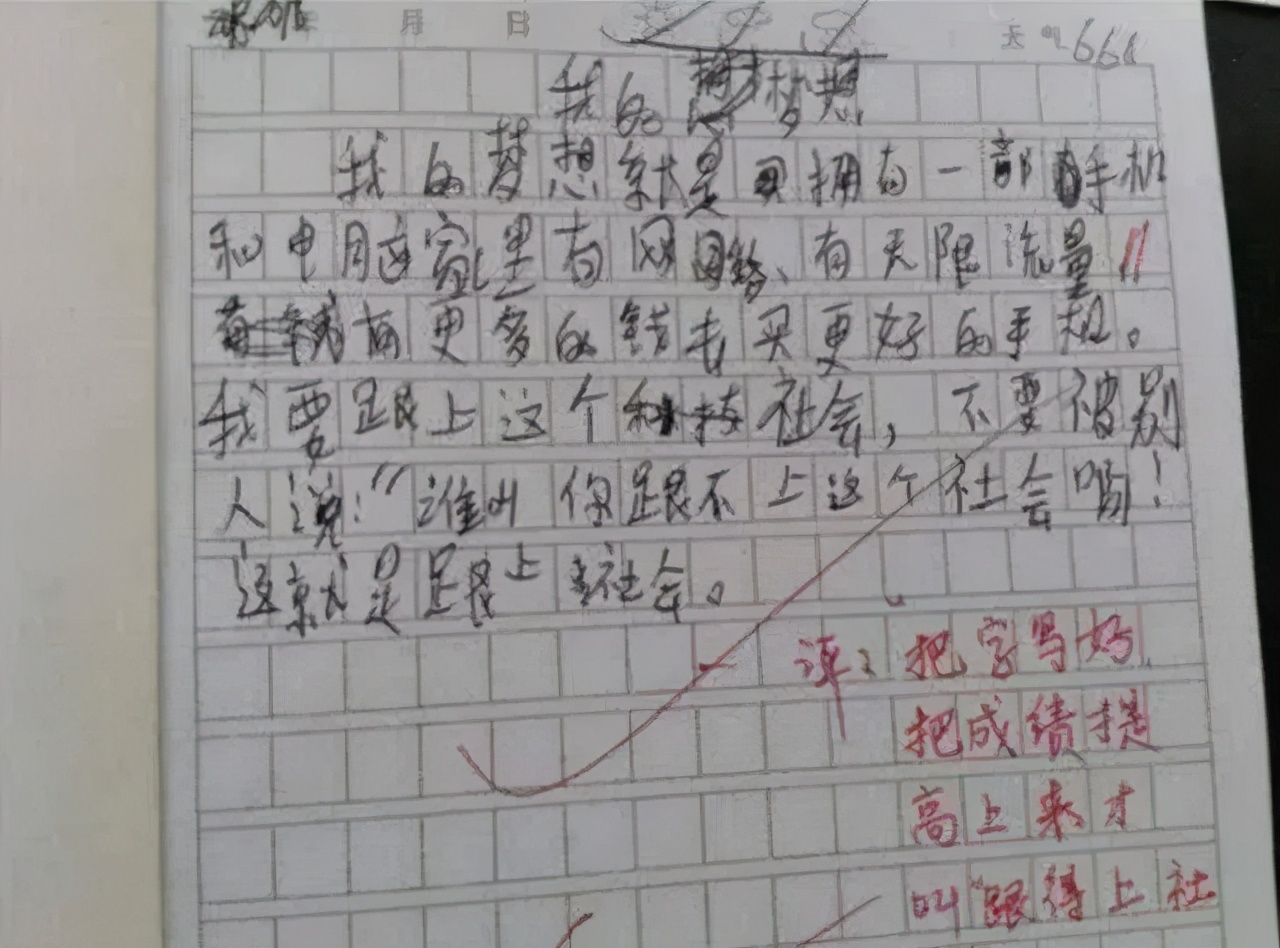 月 日 天 661
我的梦想
我的梦想就是拥有一部手机
和电脑这家里有网络、有无限流量
有更多的钱去买更好的手机。
我要跟上这个科技社会,不要被别
人说:"谁叫你跟不上这个社会啊!
这就是跟上社会。
评:把字写好
把成绩提
高上来才
叫"跟得上社